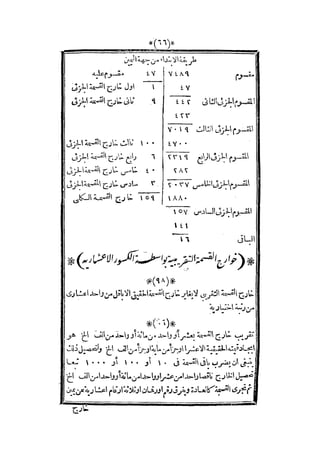 *(٦٦)*
طريقة الابتداء من جهة اليمين
مقسوم ٧٤٨٩ ٤٧ مقسوم عليه
٤٧ ١ اول خارج القسمة الجزئى
المقسوم الجزئى الثانى ٤٤٢ ٩ ثانى خارج القسمة الجزئى
٤٢٣
المقسوم الجزئى الثالث ٧٠١٩ ١٠٠ ثالث خارج القسمة الجزئى
٤٧٠٠
المقسوم الجزئى الرابع ٢٣١٩ ٦ رابع خارج القسمة الجزئى
٢٨٢ ٤٠ خامس خارج القسمة الجزئى
المقسوم الجزئى الخامس ٢٠٣٧ ٣ سادس خارج القسمة الجزئى
١٨٨٠ ١٥٩ خارج القسمة الكلى
المقسوم الجزئى السادس ١٥٧
١٤١
الباقى ١٦
*(خوارج القسمة التقريبية بواسطة الكسور الاعشارية)*
(٩٨)*
خارج القسمة التقريبى لا يغاير خارج القسمة الحقيقى الا باقل من واحد اعشارى
من رتبة اختيارية
*(٠٦)*
تقريب خارج القسمة بعشر أو واحد من مائة أو واحد من الف الخ هو
ايجاد قيمته الحقيقية الا عشرا او جزأ من مائة او جزأ من الف الخ ولتحصيل ذلك
ينبغى ان يضرب باقى القسمة فى ١٠ او ١٠٠ أو ١٠٠٠ تبعا
تحصيل الخارج ناقصا واحدا من عشر او واحدا من مائة أو واحدا من الف الخ
ثم تجرى القسمة كالعادة ويفرق رقم او رقمان او ثلاثة ارقام اعشارية عن يمين
خارج